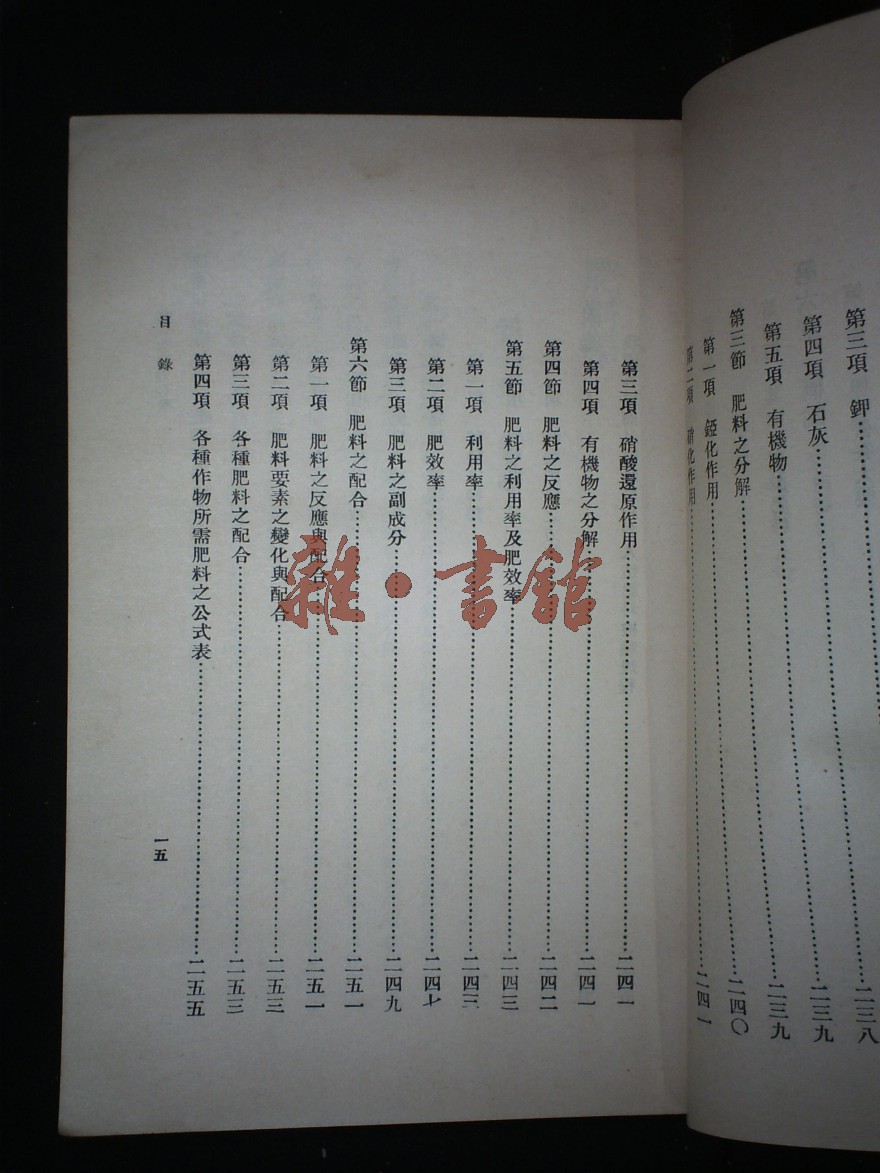 第三項　鉀……二三八
第四項　石灰……二三九
第五項　有機物……二三九
第三節　肥料之分解……二四〇
第一項　錏化作用
第二項　硝化作用……二四一
第三項　硝酸還原作用……二四一
第四項　有機物之分解……二四一
第四節　肥料之反應……二四二
第五節　肥料之利用率及肥效率……二四三
第一項　利用率……二四三
第二項　肥效率……二四七
第三項　肥料之副成分……二四九
第六節　肥料之配合……二五一
第一項　肥料之反應與配合……二五一
第二項　肥料要素之變化與配合……二五三
第三項　各種肥料之配合……二五三
第四項　各種作物所需肥料之公式表……二五五
目錄
一五
雜·書館